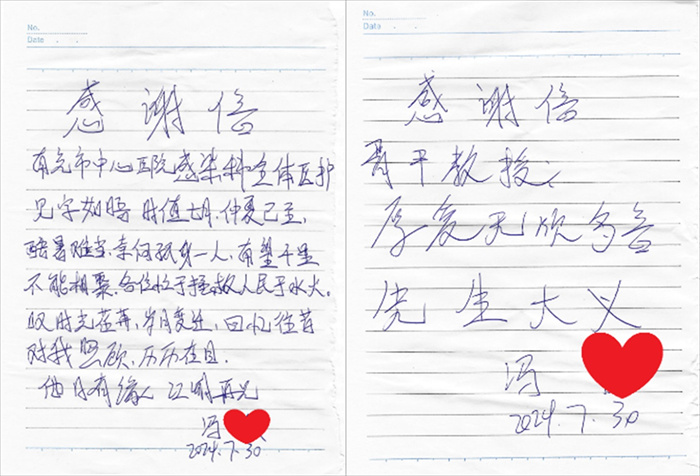 No.
Date
感谢信
南充市中心医院感染科全体医护
见字如晤 时值七月,仲夏已至,
酷暑难当,奈何孤身一人,南望千里
不能相聚,各位忙于拯救人民于水火,
叹时光荏苒,岁月变迁,回忆往昔
对我照顾,历历在目.
他日有缘 江湖再见
冯
2024.7.30
No.
Date
感谢信
教授:
厚爱无须多言
先生大义
冯
2024.7.30